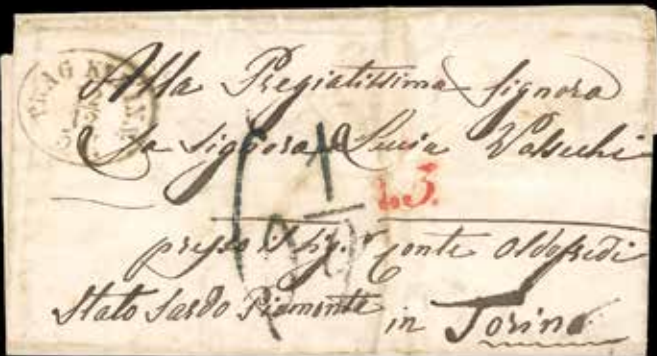 PRAG
Alla Pregiatissima Signora
La Signora Lucia Valsecchi
L3.
presso il Sig.r Conte Oldofredi
Stato Sardo Piemonte in Torino